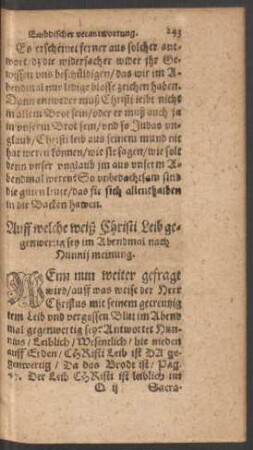 Embdischer verantwortung. 243
Es erscheinet ferner aus solcher ant-
wort / dz die widersacher wider ihr Ge-
wissen uns beschüldigen / das wir im A-
bendmal nur ledige blosse zeichen haben.
Dann entweder muß Christi leibe nicht
in allem Brot sein / oder er muß auch ja
in unserm Brot sein / und so Judas un-
glaub / Christi leib aus seinem mund nit
hat weren können / wie sie sagen / wie solt
denn unser unglaub jm aus unserm A-
bendmal weren? So unbedachtsam sind
die guten leute / das sie sich allenthalben
in die Backen hawen.
Auff welche weiß Christi Leib ge-
genwertig sey im Abendmal nach
Hunnij meinung.
WEnn nun weiter gefragt
wird / auff was weise der Herr
Christus mit seinem gecreutzig-
tem Leib und vergossen Blut im Abend
mal gegenwertig sey? Antwortet Hun-
nius / Leiblich / Wesentlich / hie nieden
auff Erden / CHRisti Leib ist DA ge-
genwertig / Da das Brodt ist / Pag.
Der Leib CHRisti ist leiblich im
Q ij Sacra-